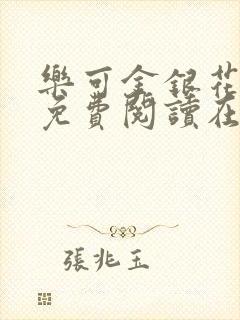 樂可金銀花
免費閱讀在
張兆玉